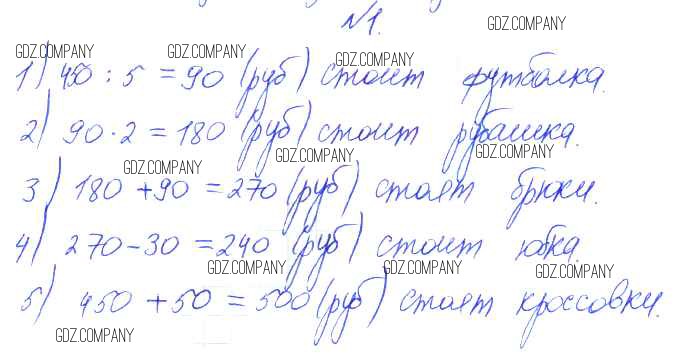 №1.
GDZ.COMPANY
GDZ.COMPANY GDZ.COMPANY GDZ.COMPANY
1) 450 : 5 = 90 (руб) стоит футболка.
2) 90 · 2 = 180 (руб) стоит рубашка.
GDZ.COMPANY GDZ.COMPANY GDZ.COMPANY
3) 180 + 90 = 270 (руб) стоят брюки.
4) 270 - 30 = 240 (руб) стоит юбка.
GDZ.COMPANY GDZ.COMPANY GDZ.COMPANY
5) 450 + 50 = 500 (руб) стоят кроссовки.
GDZ.COMPANY